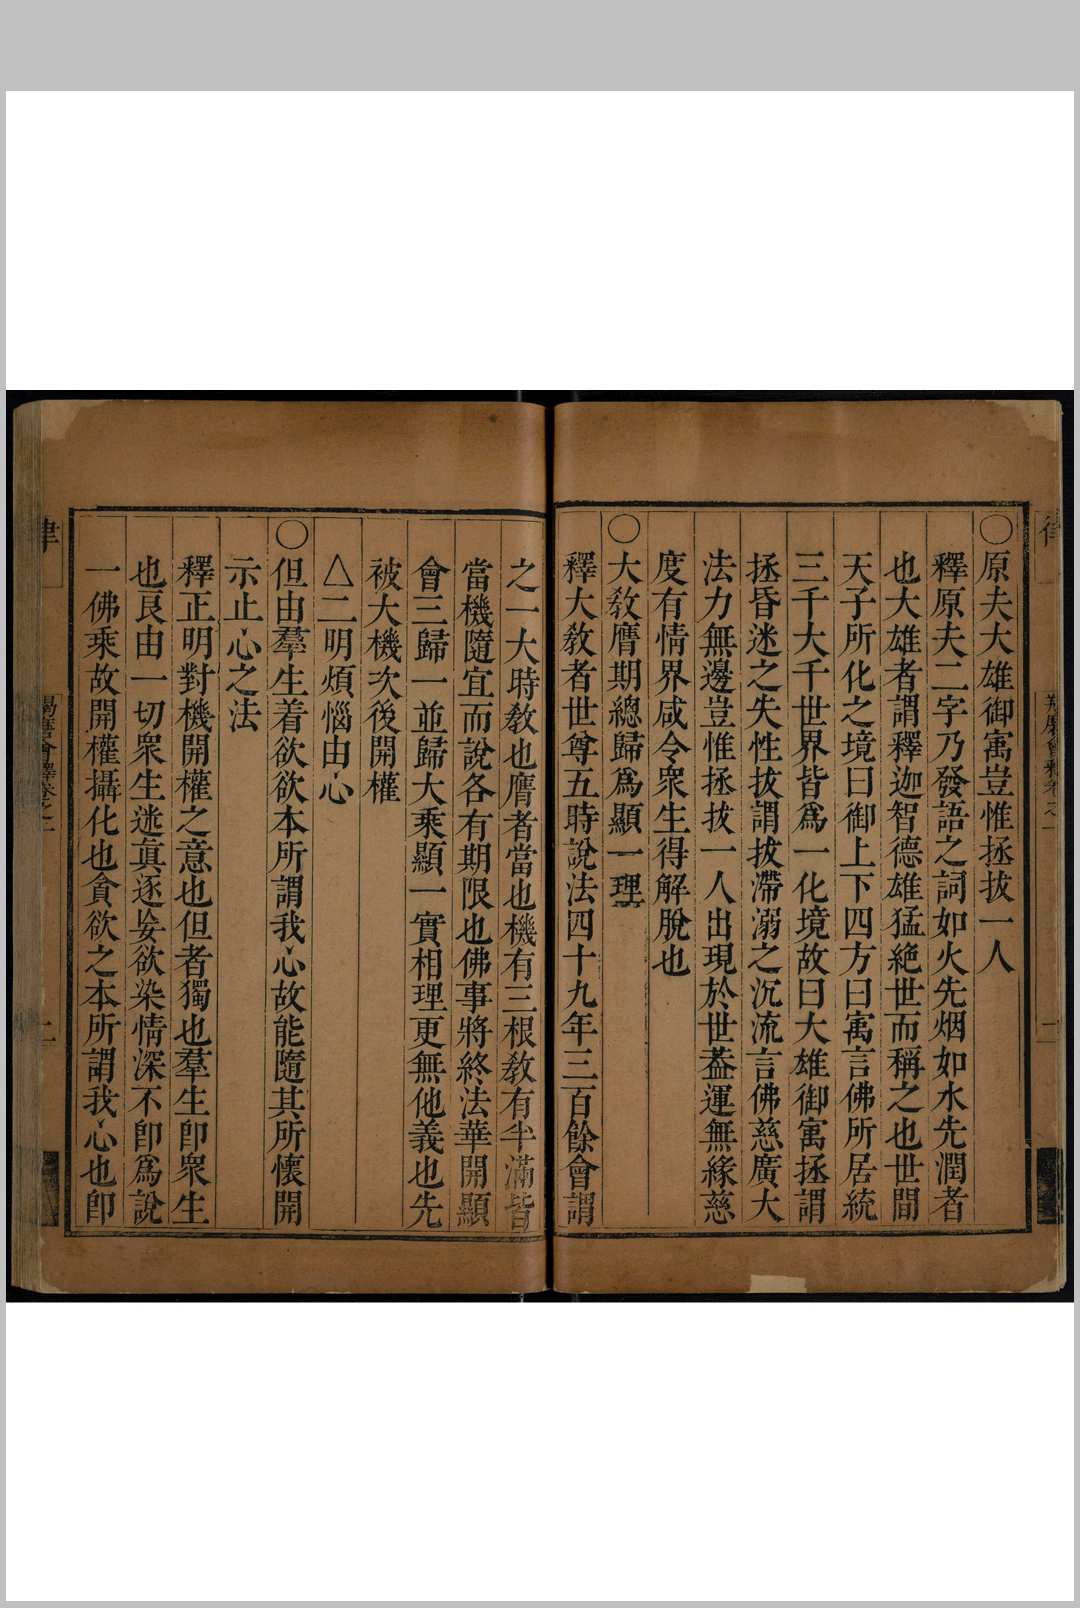 ○原夫大雄御寓豈惟拯拔一人
釋原夫二字乃發語之詞如火先烟如水先潤者
也大雄者謂釋迦智德雄猛絶世而稱之也世間
天子所化之境曰御上下四方曰寓言佛所居統
三千大千世界皆爲一化境故曰大雄御寓拯謂
拯昏迷之失性拔謂拔滯溺之沉流言佛慈廣大
法力無邊豈惟拯拔一人出現於世葢運無緣慈
度有情界咸令衆生得解脫也
○大敎膺期總歸爲顯一理
釋大敎者世尊五時說法四十九年三百餘會謂
之一大時敎也膺者當也機有三根敎有半滿皆
當機隨宜而說各有期限也佛事將終法華開顯
會三歸一並歸大乘顯一實相理更無他義也先
被大機次後開權
△二明煩惱由心
○但由羣生着欲欲本所謂我心故能隨其所懷開
示止心之法
釋正明對機開權之意也但者獨也羣生卽衆生
也良由一切衆生迷眞逐妄欲染情深不卽爲說
一佛乘故開權攝化也貪欲之本所謂我心也卽
律
羯磨會釋卷之一
二